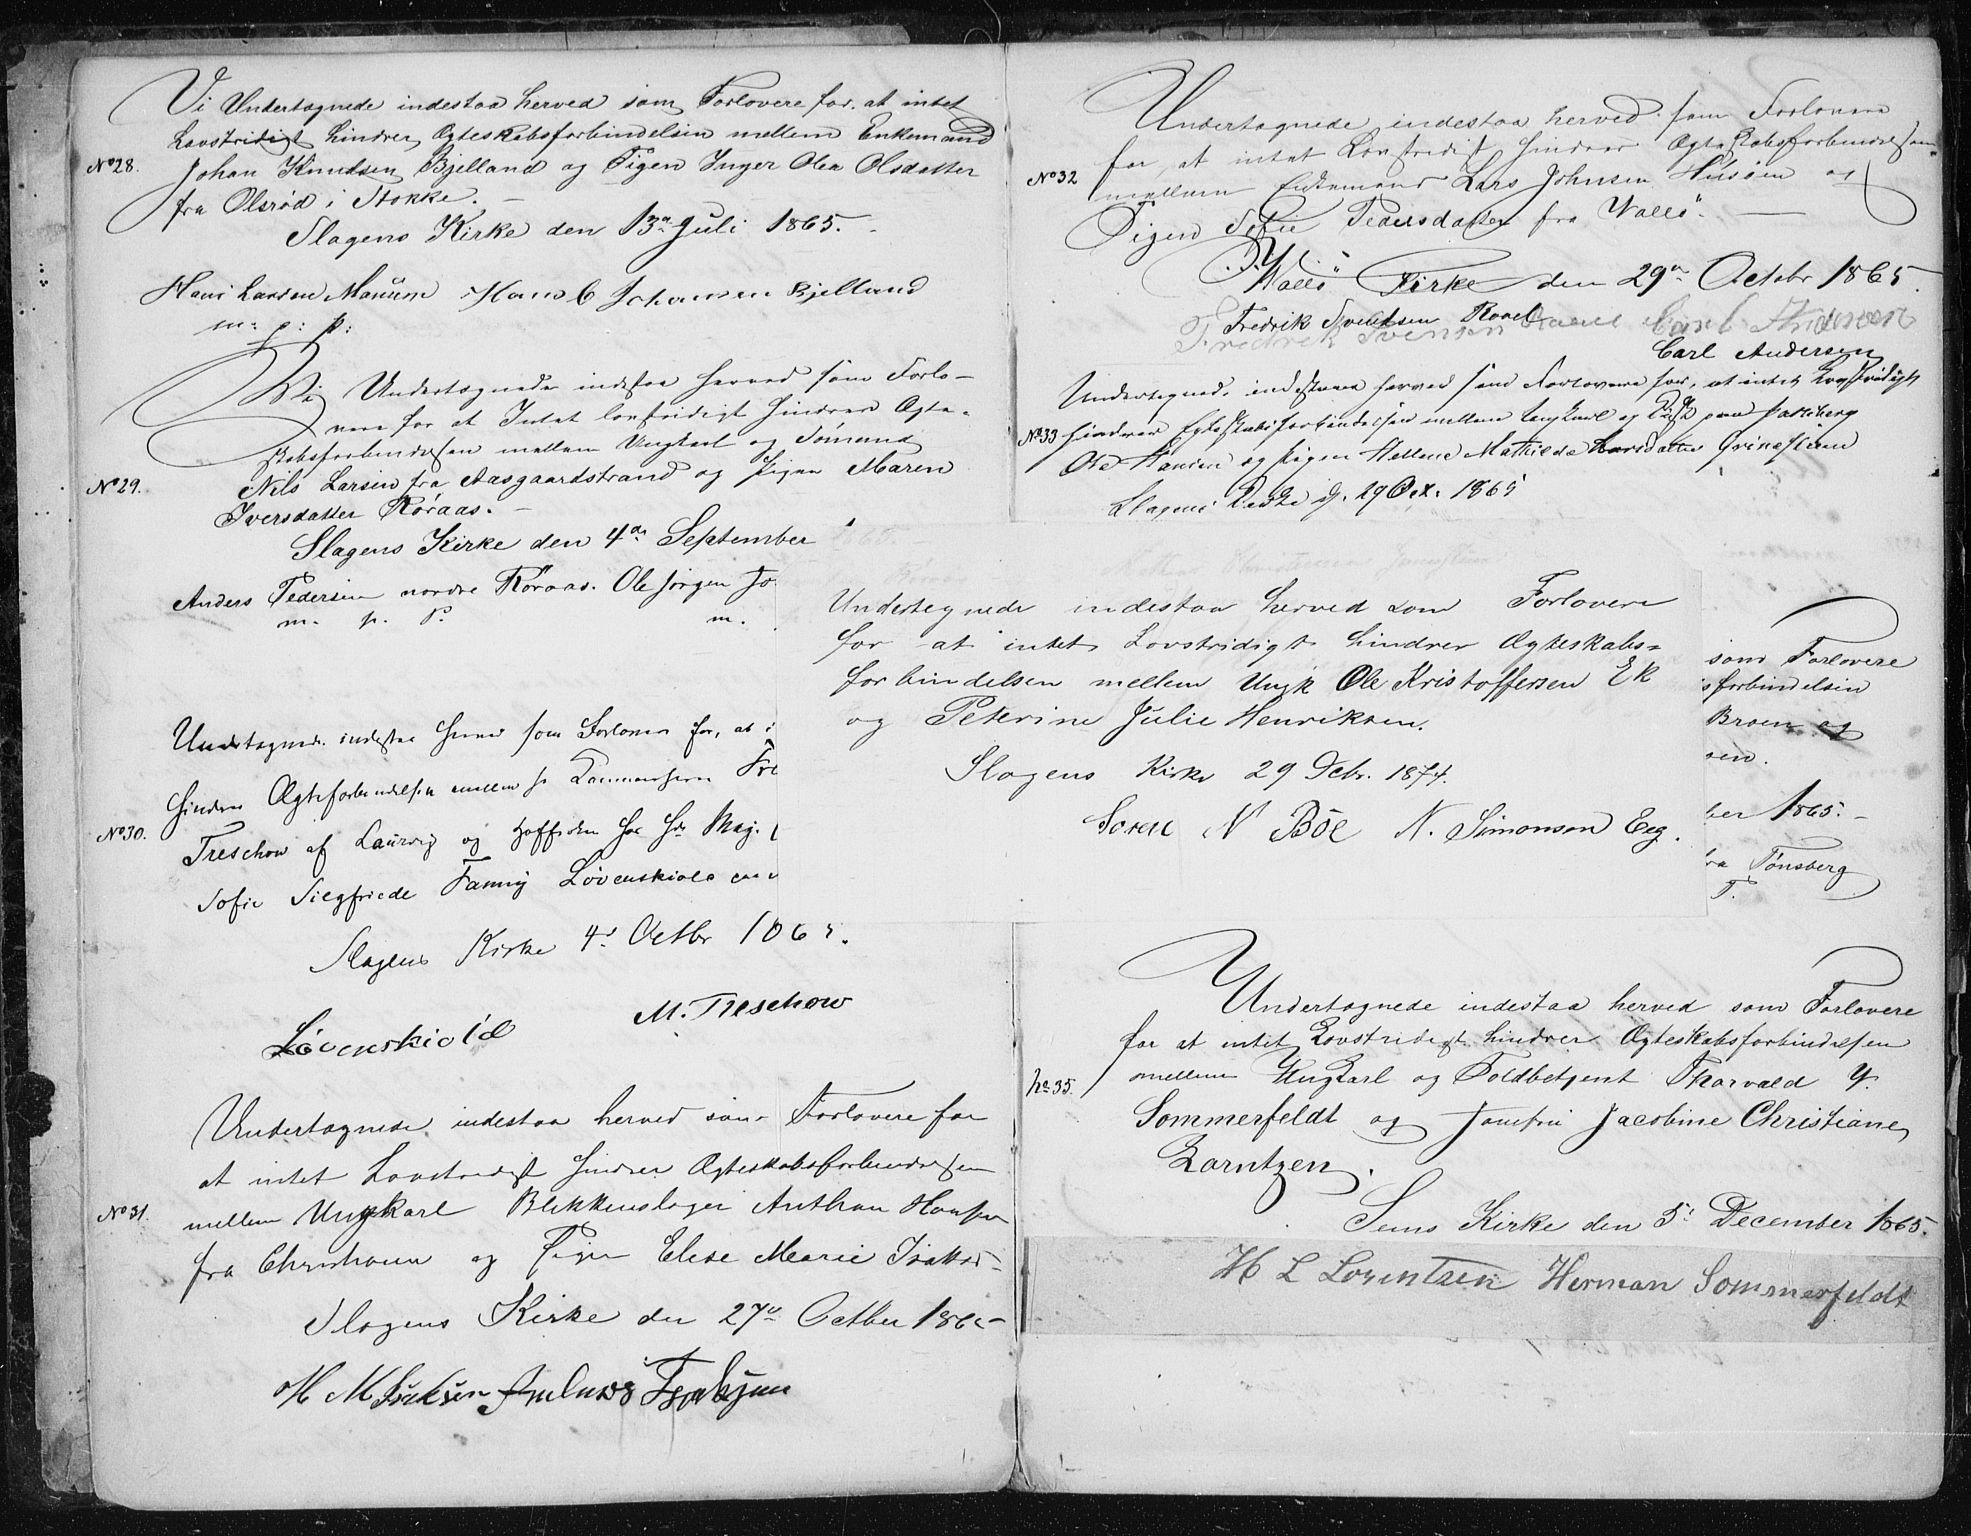 Vi Undertegnede indestaa herved som Forlovere for, at intet
Lovstridigt hindrer Ægteskabsforbindelsen mellem Enkemand
No 28. Johan Knudsen Bjelland og Pigen Inger Olea Olsdatter
fra Olsrød i Stokke. —
Slagens Kirke den 13de Juli 1865.
Hans Larsen Hans C Johansen Bjelland
m: p: p:
Vi Undertegnede indestaa herved som Forlo-
vere for at Intet lovstridigt hindrer Ægte-
skabsforbindelsen mellem Ungkarl og Sømand
No 29. Nils Larsen fra Aasgaardstrand og Pigen Maren
Iversdatter Røraas. —
Slagens Kirke den 4de September
Anders Pedersen nordre Røraas. Ole Jørgen Jo
m. p. P. m.
Undertegnede indestaa herved som Forlovere for, at i
hindrer Ægteforbindelsen mellem
No 30. Treschow af Laurvig og
Sofie Siegfriede Fanny Løvenskiold
Slagens Kirke 4d Octbr 1865.
Løvenskiold M. Treschow
Undertegnede indestaa herved som Forlovere for
at intet Lovstridigt hindrer Ægteskabsforbindelsen
No 31. mellem Ungkarl Blikkenslager Anthon Hansen
fra og Pigen Elise Marie
Slagens Kirke den 27de October
H M
Undertegnede indestaa herved som Forlovere
for, at intet Lovstridigt hindrer Ægteskabsforbindelsen
No 32 mellem Enkemand Lars Johnsen Husøen og
Pigen Sofie Pedersdatter fra Vallö. —
Vallö Kirke den 29de Octobr 1865.
Fredrik Svendsen
Fredrek Svensen Carl Andersen
Carl Andersen
Undertegnede indestaaer herved som Forlovere for, at intet Lovstridigt
No 33 hindrer Egteskabsforbindelsen mellem Ungkarl og
Ole Hansen og Pigen Hellene Mathilde
Slagens Kirke d. 29 Oct. 1865
Undertegnede indestaa herved som Forlovere
for at intet Lovstridigt hindrer Ægteskabs=
forbindelsen mellem Ungk Ole Kristoffersen Ek
og Peterine Julie Henriksen.
Slagens Kirke 29 Dcbr. 1874.
Soren N Böe N. Simonsen Eeg.
som Forlovere
sforbindelsen
Broen og
sen.
ber 1865. —
ra Tønsberg
T.
Undertegnede indestaa herved som Forlovere
for at intet Lovstridigt hindrer Ægteskabsforbindelsen
No 35. mellem Ungkarl og Toldbetjent Thorvald
Sommerfeldt og Jomfru Jacobine Christiane
Lorntzen.
Sems Kirke den 5d December 1865.
H L Lorentzen Herman Sommerfeldt